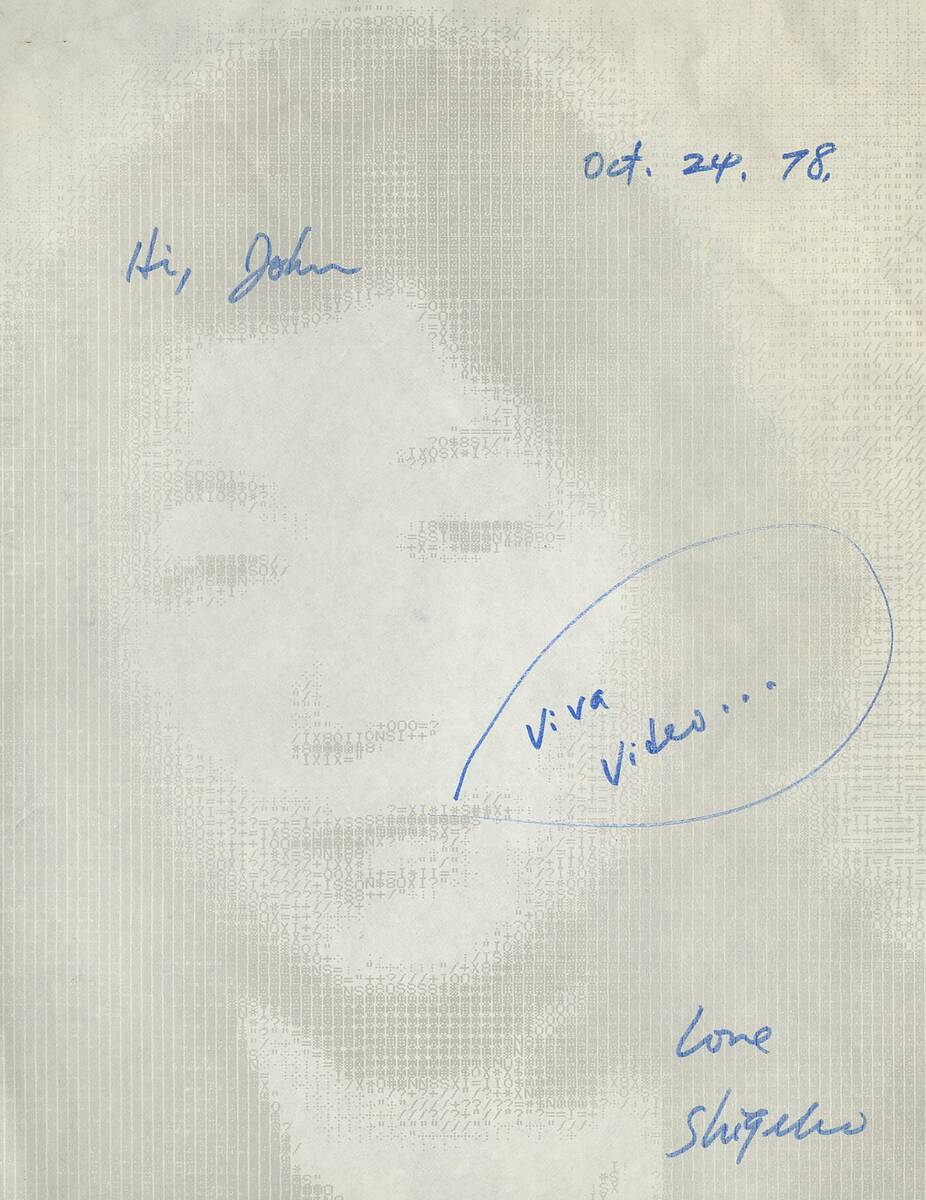 Oct. 24. 78.
Hi, John
Viva
Video...
Love
Shigeko